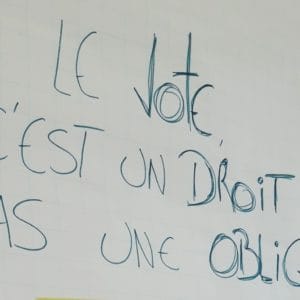 LE VOTE,
C'EST UN DROIT
PAS UNE OBLIG